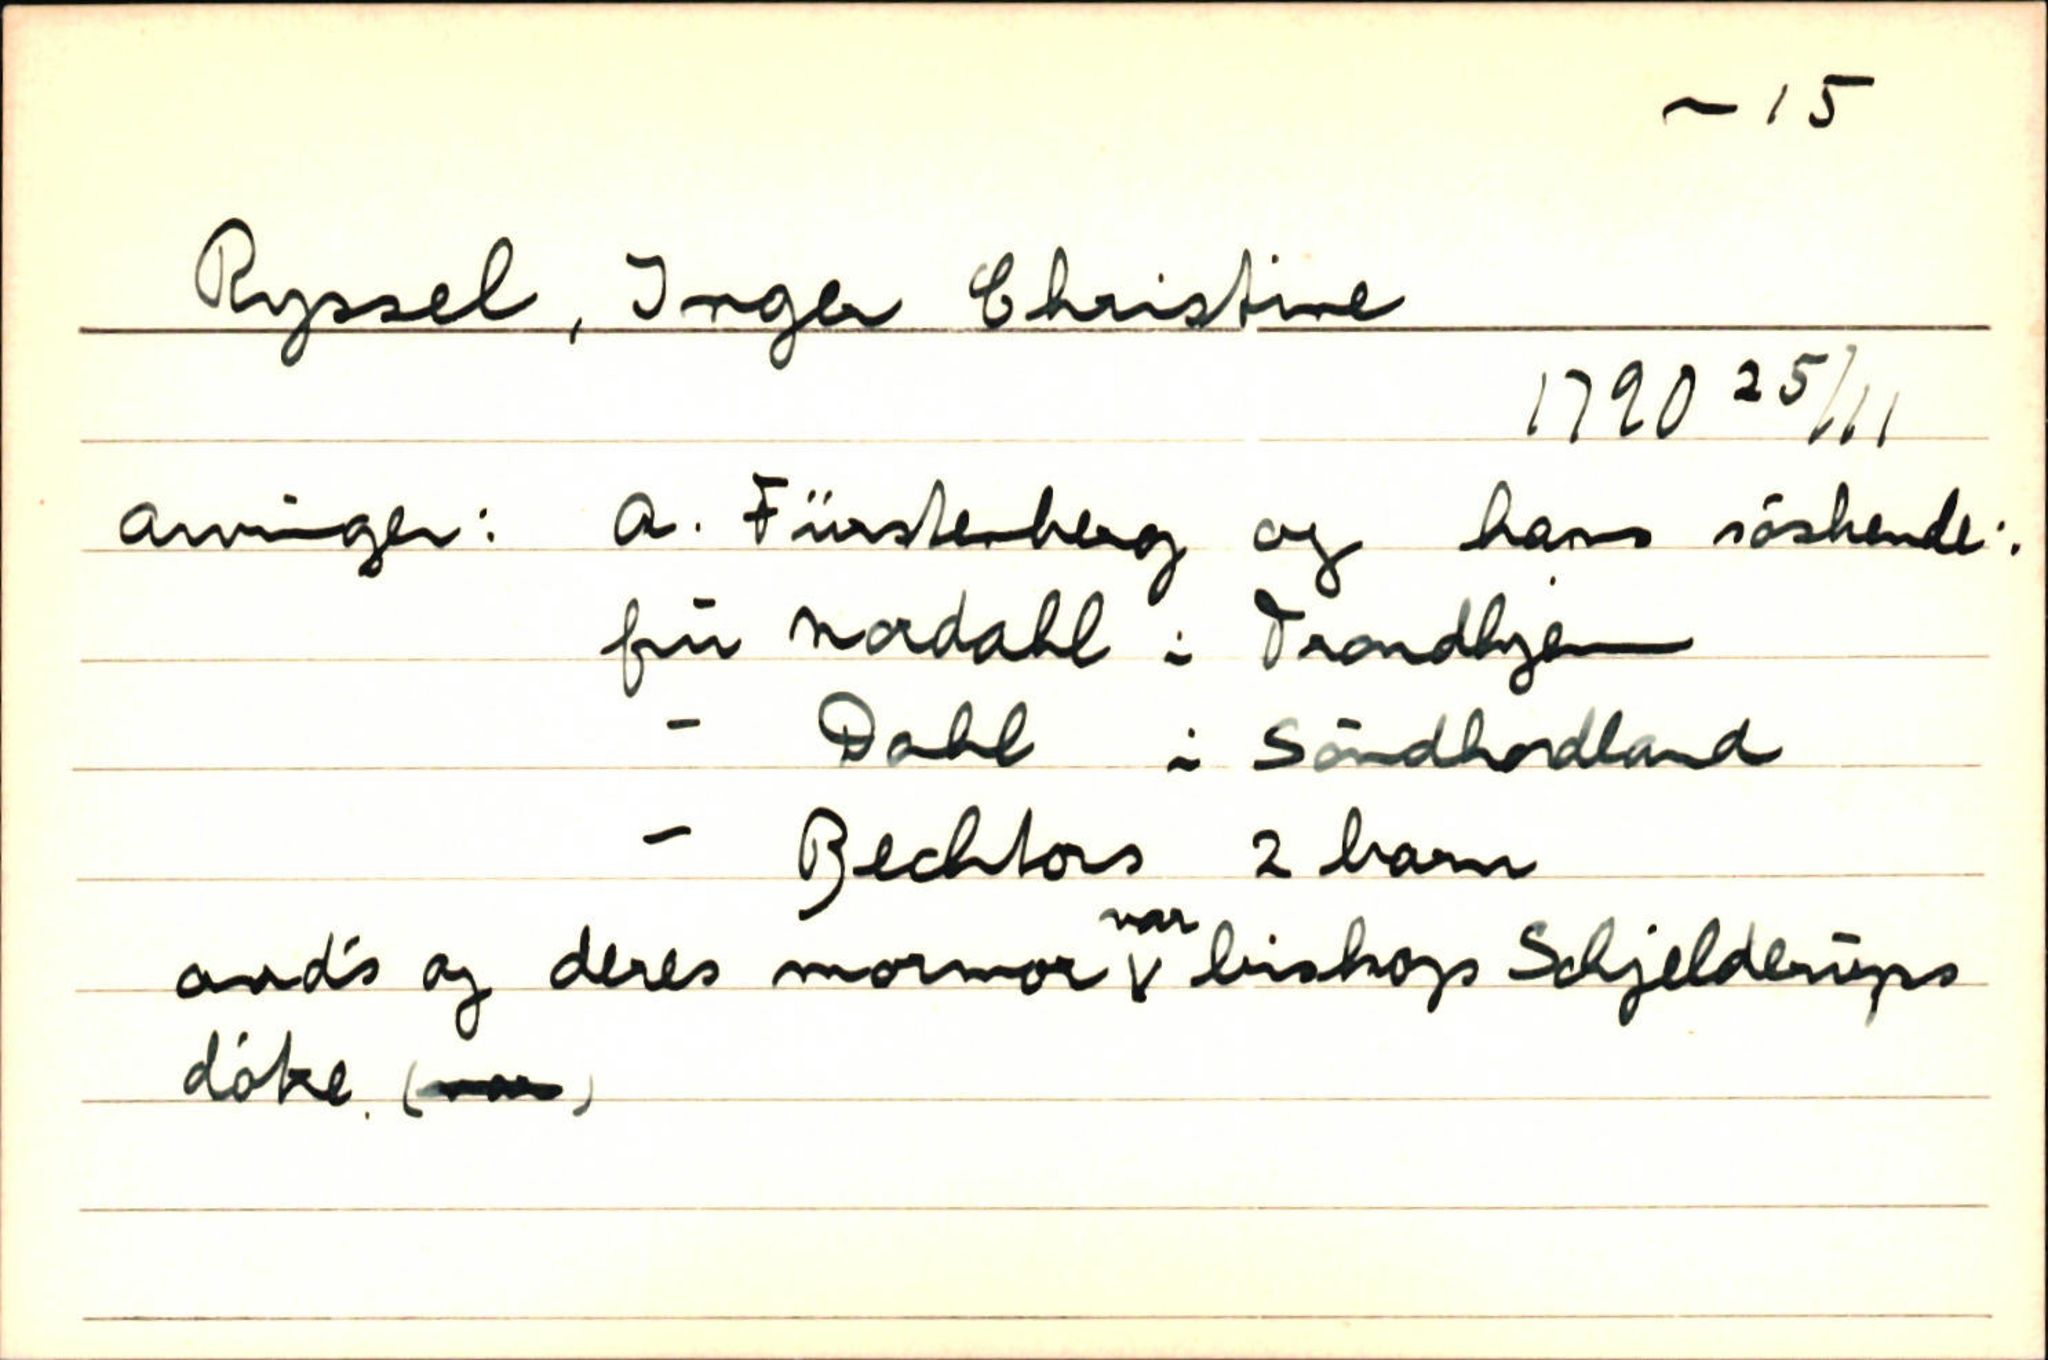 ~ 15
Ryssel, Inger Christine
1790 25/11
arvinger: A. Fürstenberg og hans söskende:
frü Nordahl i Trondhjem
- Dahl i Söndhordland
- Bechtors 2 barn
avd's og deres mormor var biskops Schjelderūps
döttre. (var)